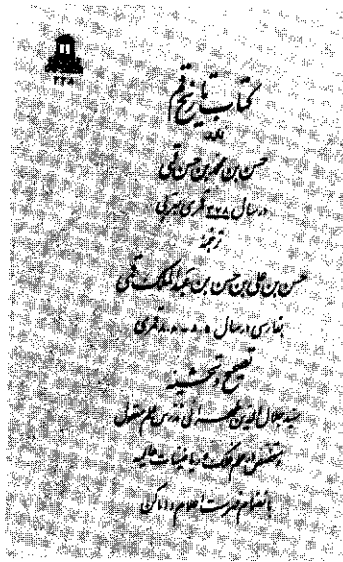 کتاب تاریخ قم
تألیف
حسن بن محمد بن حسن قمی
در سال ۳۷۸ قمری بعربی
ترجمه
حسن بن علی بن حسن بن عبدالملک قمی
بفارسی در سال قمری
تصحیح و تحشیه
سید جلال الدین طهرانی مدرس علم معقول
و متخصص در علم فلک و ریاضیات عالیه
فهرست اعلام و اماکن